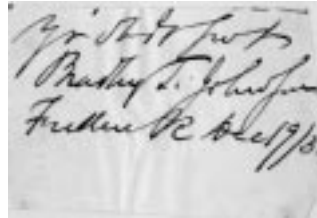 Yr obdt Svt
Bradley T. Johnson
Frederick Dec 19/